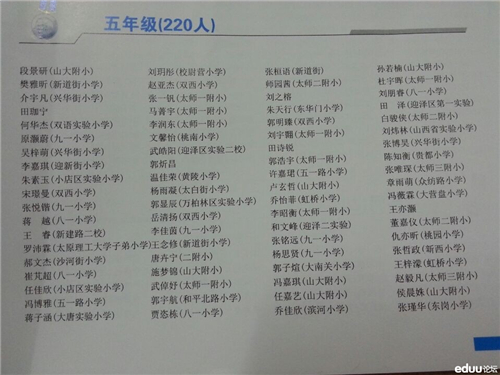 五年级(220人)
段景研(山大附小)
樊雅昕(新道街小学)
介宇凡(兴华街小学)
田珈宁
何华杰(双语实验小学)
原灏蔚(九一小学)
吴梓萌(兴华街小学)
李嘉琪(迎新街小学)
朱素玉(小店区实验小学)
宋璟曼(双西小学)
张悦锴(九一小学)
蒋 越(八一小学)
王 睿(新建路二校)
罗沛霖(太原理工大学子弟小学)
郝文杰(沙河街小学)
崔芃超(八一小学)
任佳欣(小店区实验小学)
冯博雅(五一路小学)
蒋子涵(大唐实验小学)
刘玥彤(校尉营小学)
赵亚杰(双西小学)
张一钒(太师一附小)
马菁宇(太师一附小)
李润东(太师一附小)
文馨怡(桃南小学)
武皓阳(迎泽区实验二校)
郭炘昌
温佳荣(黄陵小学)
杨雨凝(太白街小学)
郭显辰(万柏林区实验小学)
岳清扬(双西小学)
李佳茵(九一小学)
王念修(新道街小学)
唐卉宁(二附小)
施梦锦(山大附小)
武倬妤(太师一附小)
郭宇航(和平北路小学)
贾恣栋(八一小学)
张桓语(新道街)
师园茜(太师二附小)
刘之榕
朱天行(东华门小学)
郭明臻(双西小学)
刘宇翾(太师一附小)
田诗锐
郭浩宇(太师一附小)
许嘉珺(五一路小学)
卢玄哲(山大附小)
乔怡菲(虹桥小学)
李昭衡(太师一附小)
和文峰(迎泽二实验)
张铭远(九一小学)
杨思贤(九一小学)
郭子煊(大南关小学)
冯嘉琪(山大附小)
任嘉艺(山大附小)
乔佳欣(滨河小学)
孙若楠(山大附小)
杜宇晖(太师一附小)
刘朋睿(八一小学)
田 泽(迎泽区第一实验)
白骏侠(太师二附小)
刘炜林(山西省实验小学)
张博昊(兴华街小学)
陈知衡(贵都小学)
张唯琛(太师三附小)
章雨萌(众纺路小学)
冯薇霖(大营盘小学)
王亦灏
董嘉仪(太师二附小)
仇亦昕(桃园小学)
张哲政(坝西小学)
王梓濛(虹桥小学)
赵毅凡(太师三附小)
侯晨姝(山大附小)
张瑾华(东岗小学)
eduu论坛